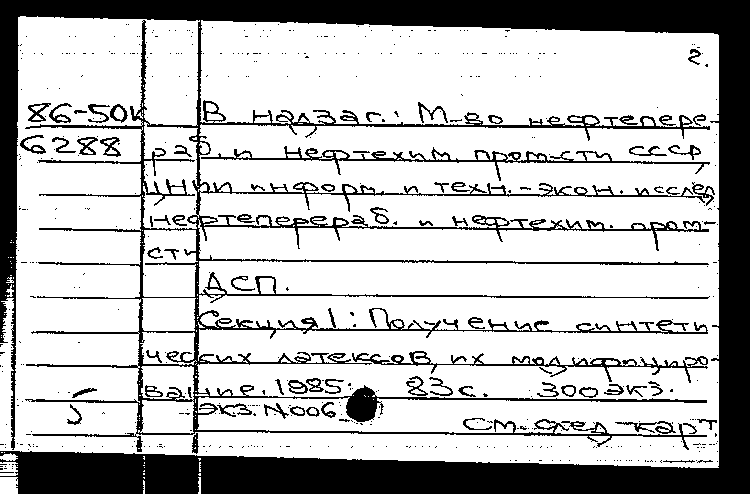 2.
86-50к В надзаг.: М-во нефтепере-
6288 раб. и нефтехим. пром-сти СССР,
ЦНИИ информ. и техн.-экон. исслед
нефтеперераб. и нефтехим. пром-
сти.
ДСП.
Секция 1: Получение синтети-
ческих латексов, их модифициро-
вание. 1985. 83 с. 300 экз.
экз. N 006
см. след карт